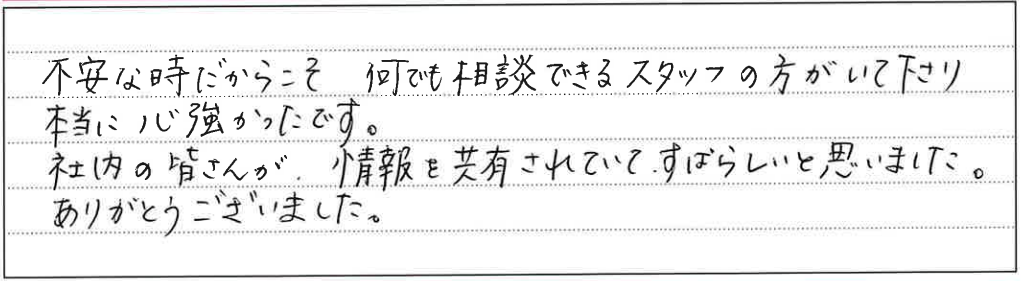 不安な時だからこそ 何でも相談できるスタッフの方がいて下さり
本当に心強かったです。
社内の皆さんが、情報を共有されていて、すばらしいと思いました。
ありがとうございました。